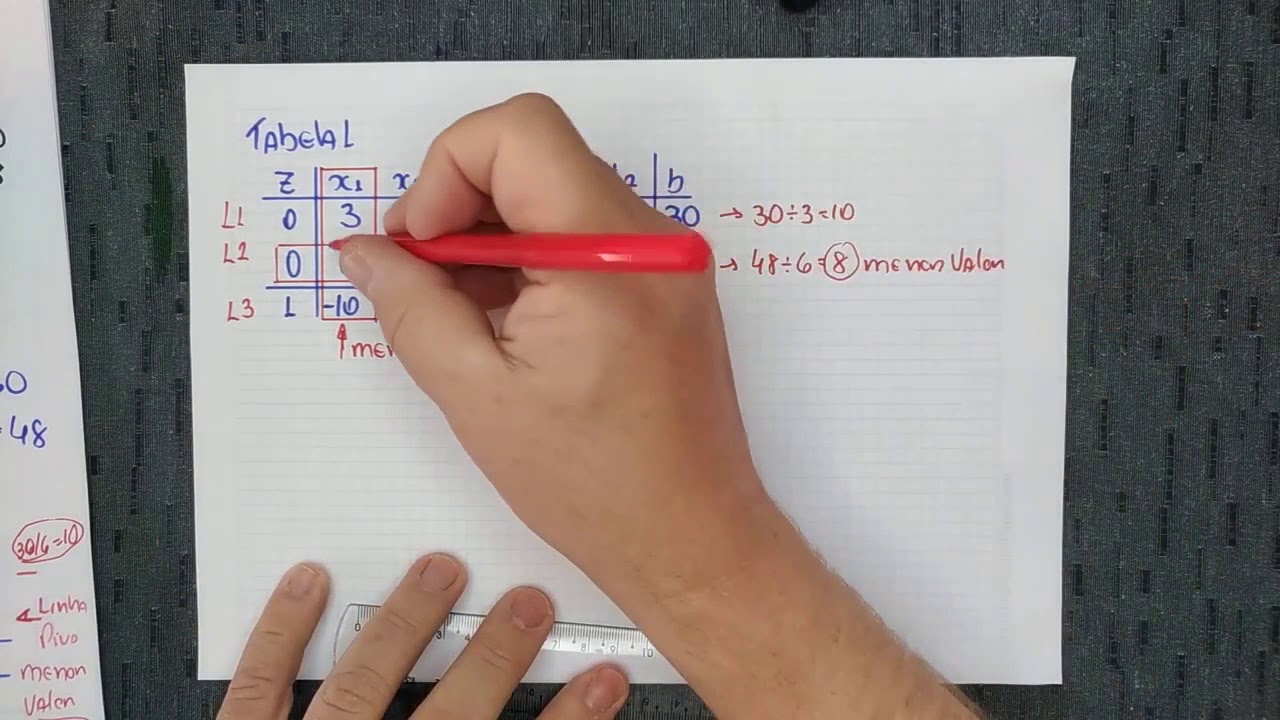 Tabela 1
Z x1 x b
L1 0 3 30 → 30÷3=10
L2 0 → 48÷6=8 menor valor
L3 1 -10
men
0
48
30/6=10
Linha
Pivo
menor
valor
0 1 2 3 4 7 8 9 10